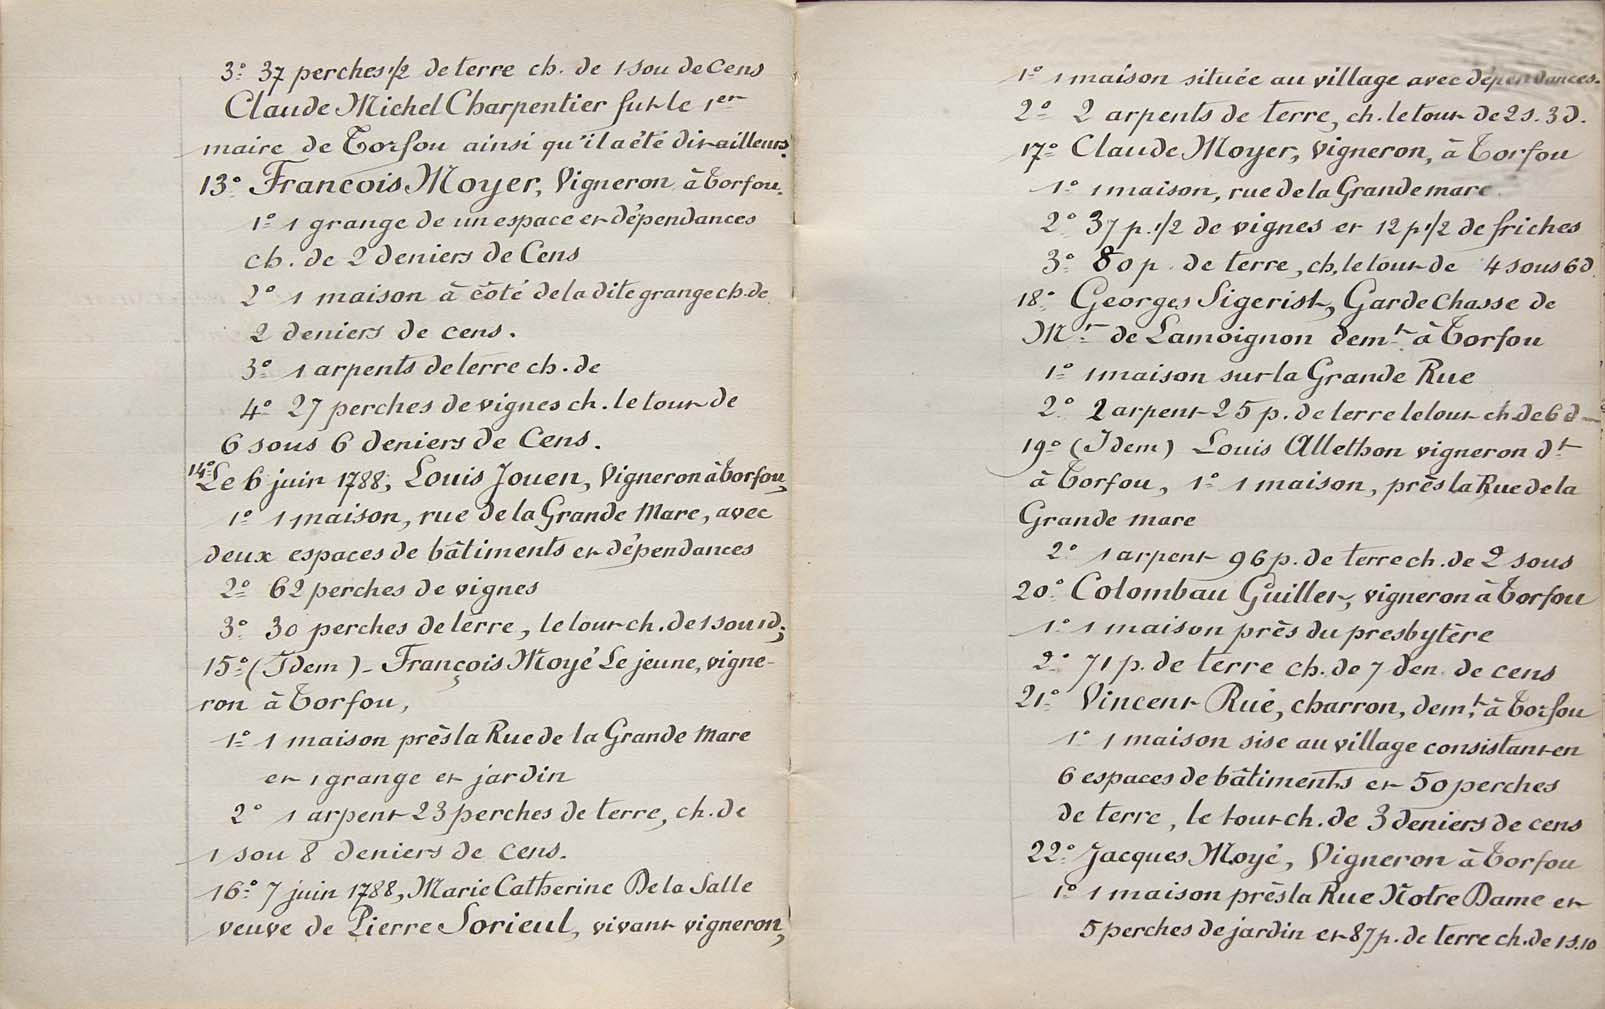 3º 37 perches 1/2 de terre ch. de 1 sou de Cens
Claude Michel Charpentier fut le 1er
maire de Torfou ainsi qu'il a été dit ailleurs.
13º François Moyer, Vigneron à Torfou.
1º 1 grange de un espace et dépendances
ch. de 2 deniers de Cens
2º 1 maison à côté de la dite grange ch. de
2 deniers de cens.
3º 1 arpents de terre ch. de
4º 27 perches de vignes ch. le tout de
6 sous 6 deniers de Cens.
14º Le 6 juin 1788, Louis Jouen, Vigneron à Torfou,
1º 1 maison, rue de la Grande Mare, avec
deux espaces de bâtiments et dépendances
2º 62 perches de vignes
3º 30 perches de terre, le tout ch. de 1 sou 1 d;
15º (Idem) - François Moyé Le jeune, vigne-
ron à Torfou,
1º 1 maison près la Rue de la Grande Mare
et 1 grange et jardin
2º 1 arpent 23 perches de terre, ch. de
1 sou 8 deniers de cens.
16º 7 juin 1788, Marie Catherine De la Salle
veuve de Pierre Sorieul, vivant vigneron,
1º 1 maison située au village avec dépendances.
2º 2 arpents de terre, ch. le tout de 2 s. 3 d.
17º Claude Moyer, Vigneron, à Torfou
1º 1 maison, rue de la Grande mare
2º 37 p. 1/2 de vignes et 12 p 1/2 de friches
3º 80 p. de terre, ch. le tout de 4 sous 6 d.
18º Georges Sigerist, Garde Chasse de
Mr de Lamoignon demt à Torfou
1º 1 maison sur la Grande Rue
2º 2 arpent 25 p. de terre le tout ch. de 6 d
19º (Idem) Louis Allethon vigneron dt
à Torfou, 1º 1 maison, près la Rue de la
Grande mare
2º 1 arpent 96 p. de terre ch. de 2 sous
20º Colombau Guillet, vigneron à Torfou
1º 1 maison près du presbytère
2º 71 p. de terre ch. de 7 den. de cens
21º Vincent Rué, charron, demt à Torfou
1º 1 maison sise au village consistant en
6 espaces de bâtiments et 50 perches
de terre, le tout ch. de 3 deniers de cens
22º Jacques Moyé, Vigneron à Torfou
1º 1 maison près la Rue Notre Dame et
5 perches de jardin et 87 p. de terre ch. de 1 s. 10